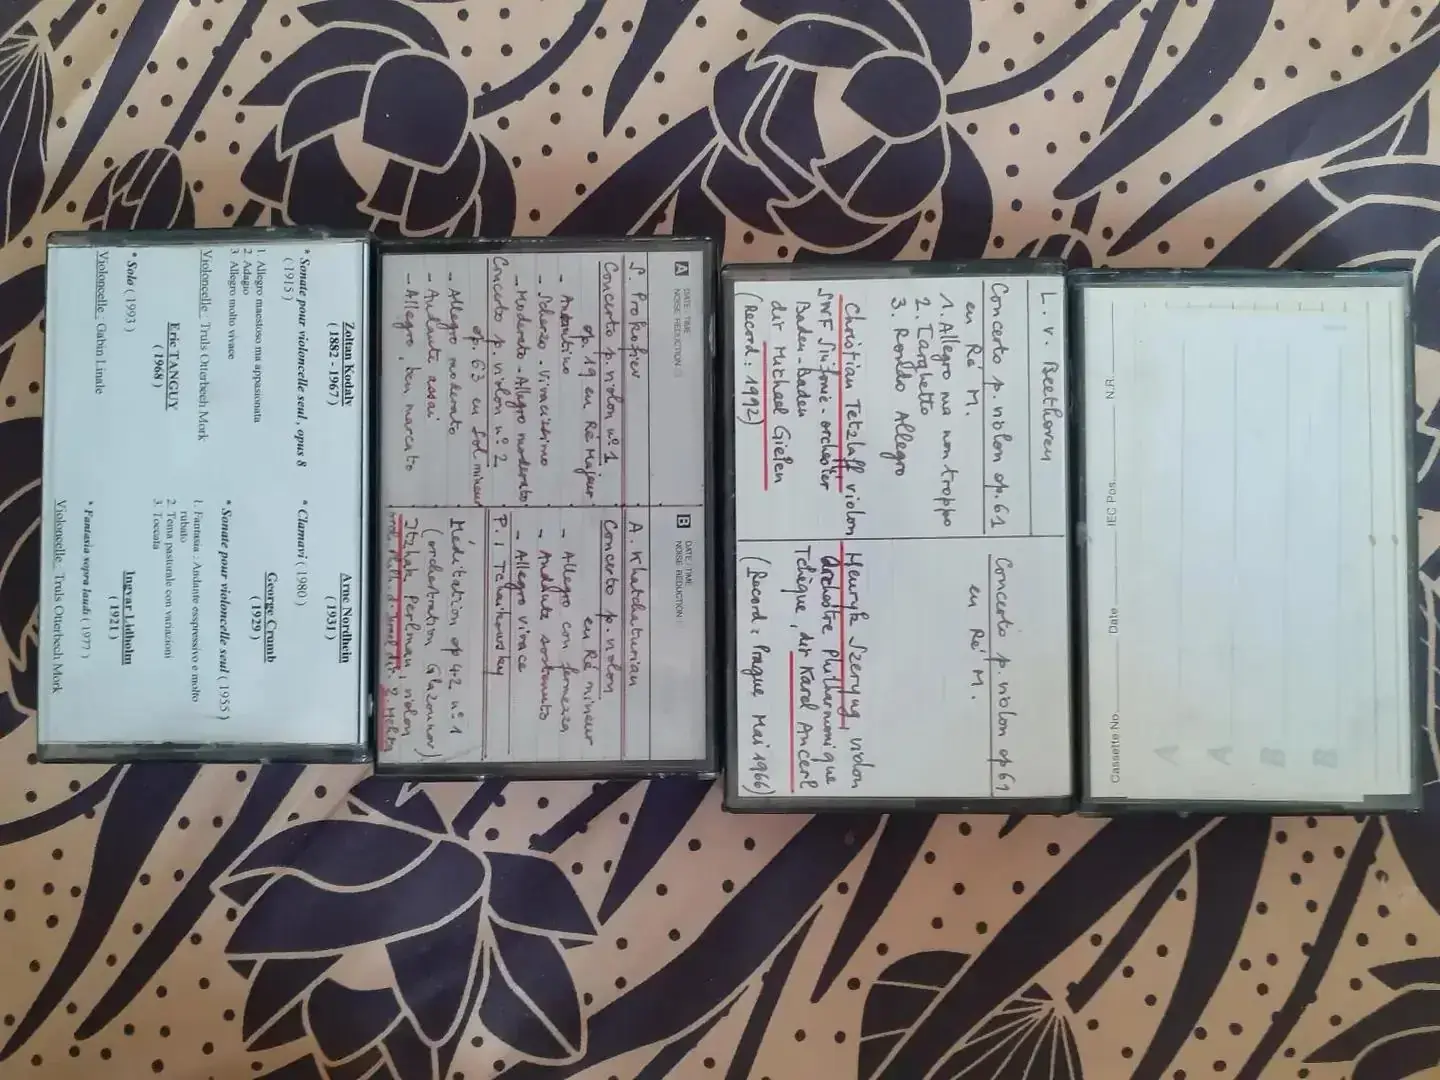 Zoltan Kodaly
( 1882 - 1967 )
* Sonate pour violoncelle seul , opus 8
( 1915 )
1 Allegro maestoso ma appasionata
2 Adagio
3 Allegro molto vivace
Violoncelle : Truls Otterbech Mork
Eric TANGUY
( 1968 )
* Solo ( 1993 )
Violoncelle : Gabin Linale
Arne Nordhein
( 1931 )
* Clamavi ( 1980 )
George Crumb
( 1929 )
* Sonate pour violoncelle seul ( 1955 )
1. Fantasia : Andante esspressivo e molto
rubato
2 Tema pastorale con variazioni
3. Toccata
Ingvar Lidholm
( 1921 )
* Fantasia sopra laudi ( 1977 )
Violoncelle : Truls Otterbech Mork
A DATE / TIME
NOISE REDUCTION
S. Prokofiev
Concerto p. violon n° 1
op. 19 en Ré Majeur
- Andantino
- Scherzo - Vivacissimo
- Moderato - Allegro moderato
Concerto p. violon n° 2
op. 63 en sol mineur
- Allegro moderato
- Andante assai
- Allegro, ben marcato
B DATE / TIME
NOISE REDUCTION
A. Khatchaturian
Concerto p. violon
en Ré mineur
- Allegro con fermezza
- Andante sostenuto
- Allegro vivace
P. I Tchaïkowsky
Méditation op 42 n° 1
(orchestration Glazounov)
Itzhak Perlman, violon
dir. Z. Mehta
L. v. Beethoven
Concerto p. violon op. 61
en Ré M.
1. Allegro ma non troppo
2. Larghetto
3. Rondo Allegro
Christian Tetzlaff violon
SWF Sinfonie-orchester
Baden-Baden
dir Michael Gielen
(Record : 1992)
Concerto p. violon op 61
en Ré M.
Henryk Szeryng violon
Orchestre Philharmonique
Tchèque, dir Karel Ancerl
(Record : Prague Mai 1966)
N.R. IEC Pos. Date Cassette No.
A
A
B
B